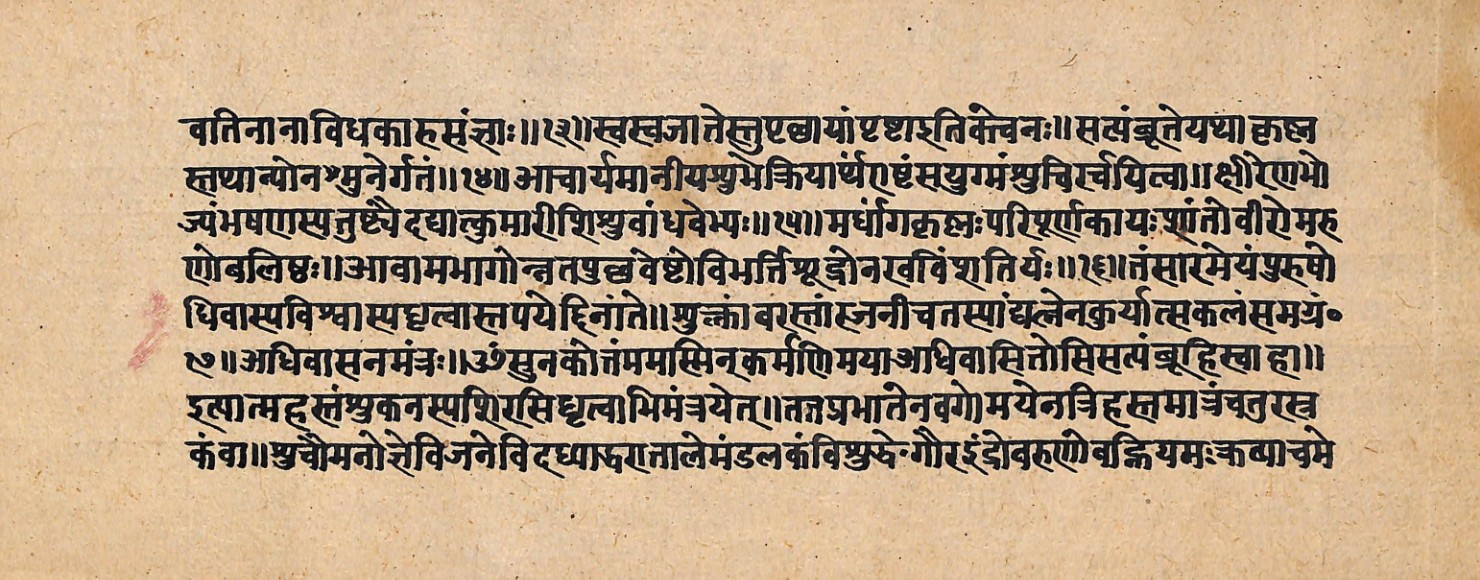 वतिनानाविधकारुसंज्ञाः॥१३॥स्वस्वजातेस्तुपृच्छायांपृष्टाइतिकेचनः॥सत्यंब्रूतेयथाकृष्ण
स्तथान्योनशुनेर्गतं॥१४॥आचार्यमानीयशुभेक्रियार्थंराष्टंसयुग्मंशुचिरर्चयित्वा॥क्षीरेणभो
ज्यंभषणस्यतुष्ट्यैदद्यात्कुमारीशिशुबांधवेभ्यः॥१५॥मर्धांगकृष्णःपरिपूर्णकायःशांतोवीरोमरु
णोबलिष्ठः॥आवामभागोन्नतपुच्छवेष्टोविभर्त्तिशूद्रोनखविंशतिर्यः॥१६॥तंसारमेयंपुरुषो
धिवास्यविश्वास्यधृत्वास्नपयेद्दिनांते॥शुक्लांबरस्तांरजनींचतस्यांद्यत्नेनकुर्यात्सकलंसमयं॰
१७॥अधिवासनमंत्रः॥ॐसुनकोत्तंममास्मिन्कर्मणिमयाअधिवासितोसिसत्यंब्रूहिस्वाहा॥
इत्यात्महस्तंशुकनस्यशिरसिधृत्वाभिमंत्रयेत्॥तत्तप्रभातेनवगोमयेनत्रिहस्तमात्रंचतुरस्त्र
कंवा॥शुचौमनोज्ञेविजनेविदध्याद्धरातालेमंडलकंविशुद्धे॰गौरइंद्रोवरुणोवह्नियमःक्रव्याचमे